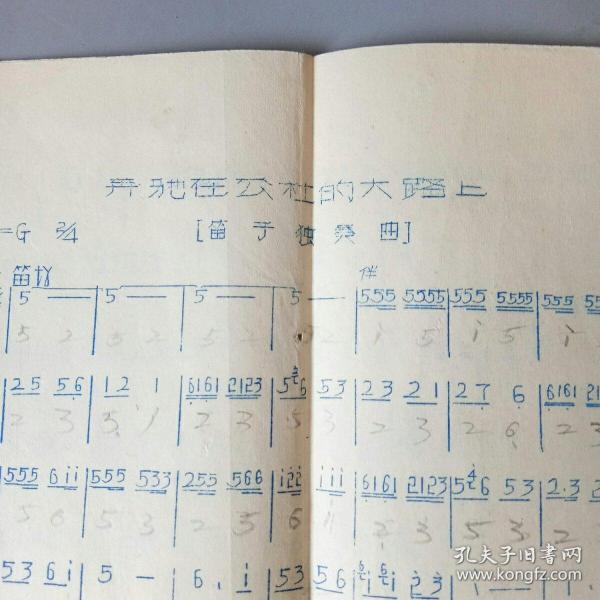 奔驰在公社的大路上
=G 2/4 [笛子独奏曲]
笛 伴
5 — 5 — 5 — 5 — 555 5555 555 5555 555
5 2 5 2 5 2 5 2 i 5 i 5 i
25 56 12 1 6161 2123 5 6 53 23 21 27 6 6161 21
2 3 5 1 2 3 5 3 2 3 2 6 2
555 6ii 555 533 255 566 i2i iii 6161 2123 5 6 53 2.3 2
5 6 5 3 2 5 6 i 2 3 5 3 2
53 6i 5 — 6. i 53 56 i i 23 i — i.
孔夫子旧书网
www.kongfz.com